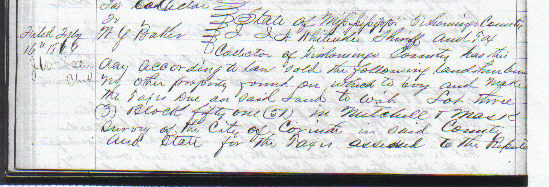 Tax Collector
To
W. G. Baker
Filed July
16th
State of Mississippi Tishomingo County
Sheriff and Tax
Collector of Tishomingo County has this
day according to law sold the following land
no other property found on which to levy and make
the Taxes due on said Land to wit Lot three
(3) Block fifty one (51) in Mitchell & Mask
Survey of the City of Corinth in said County
and State for the Taxes assessed to the